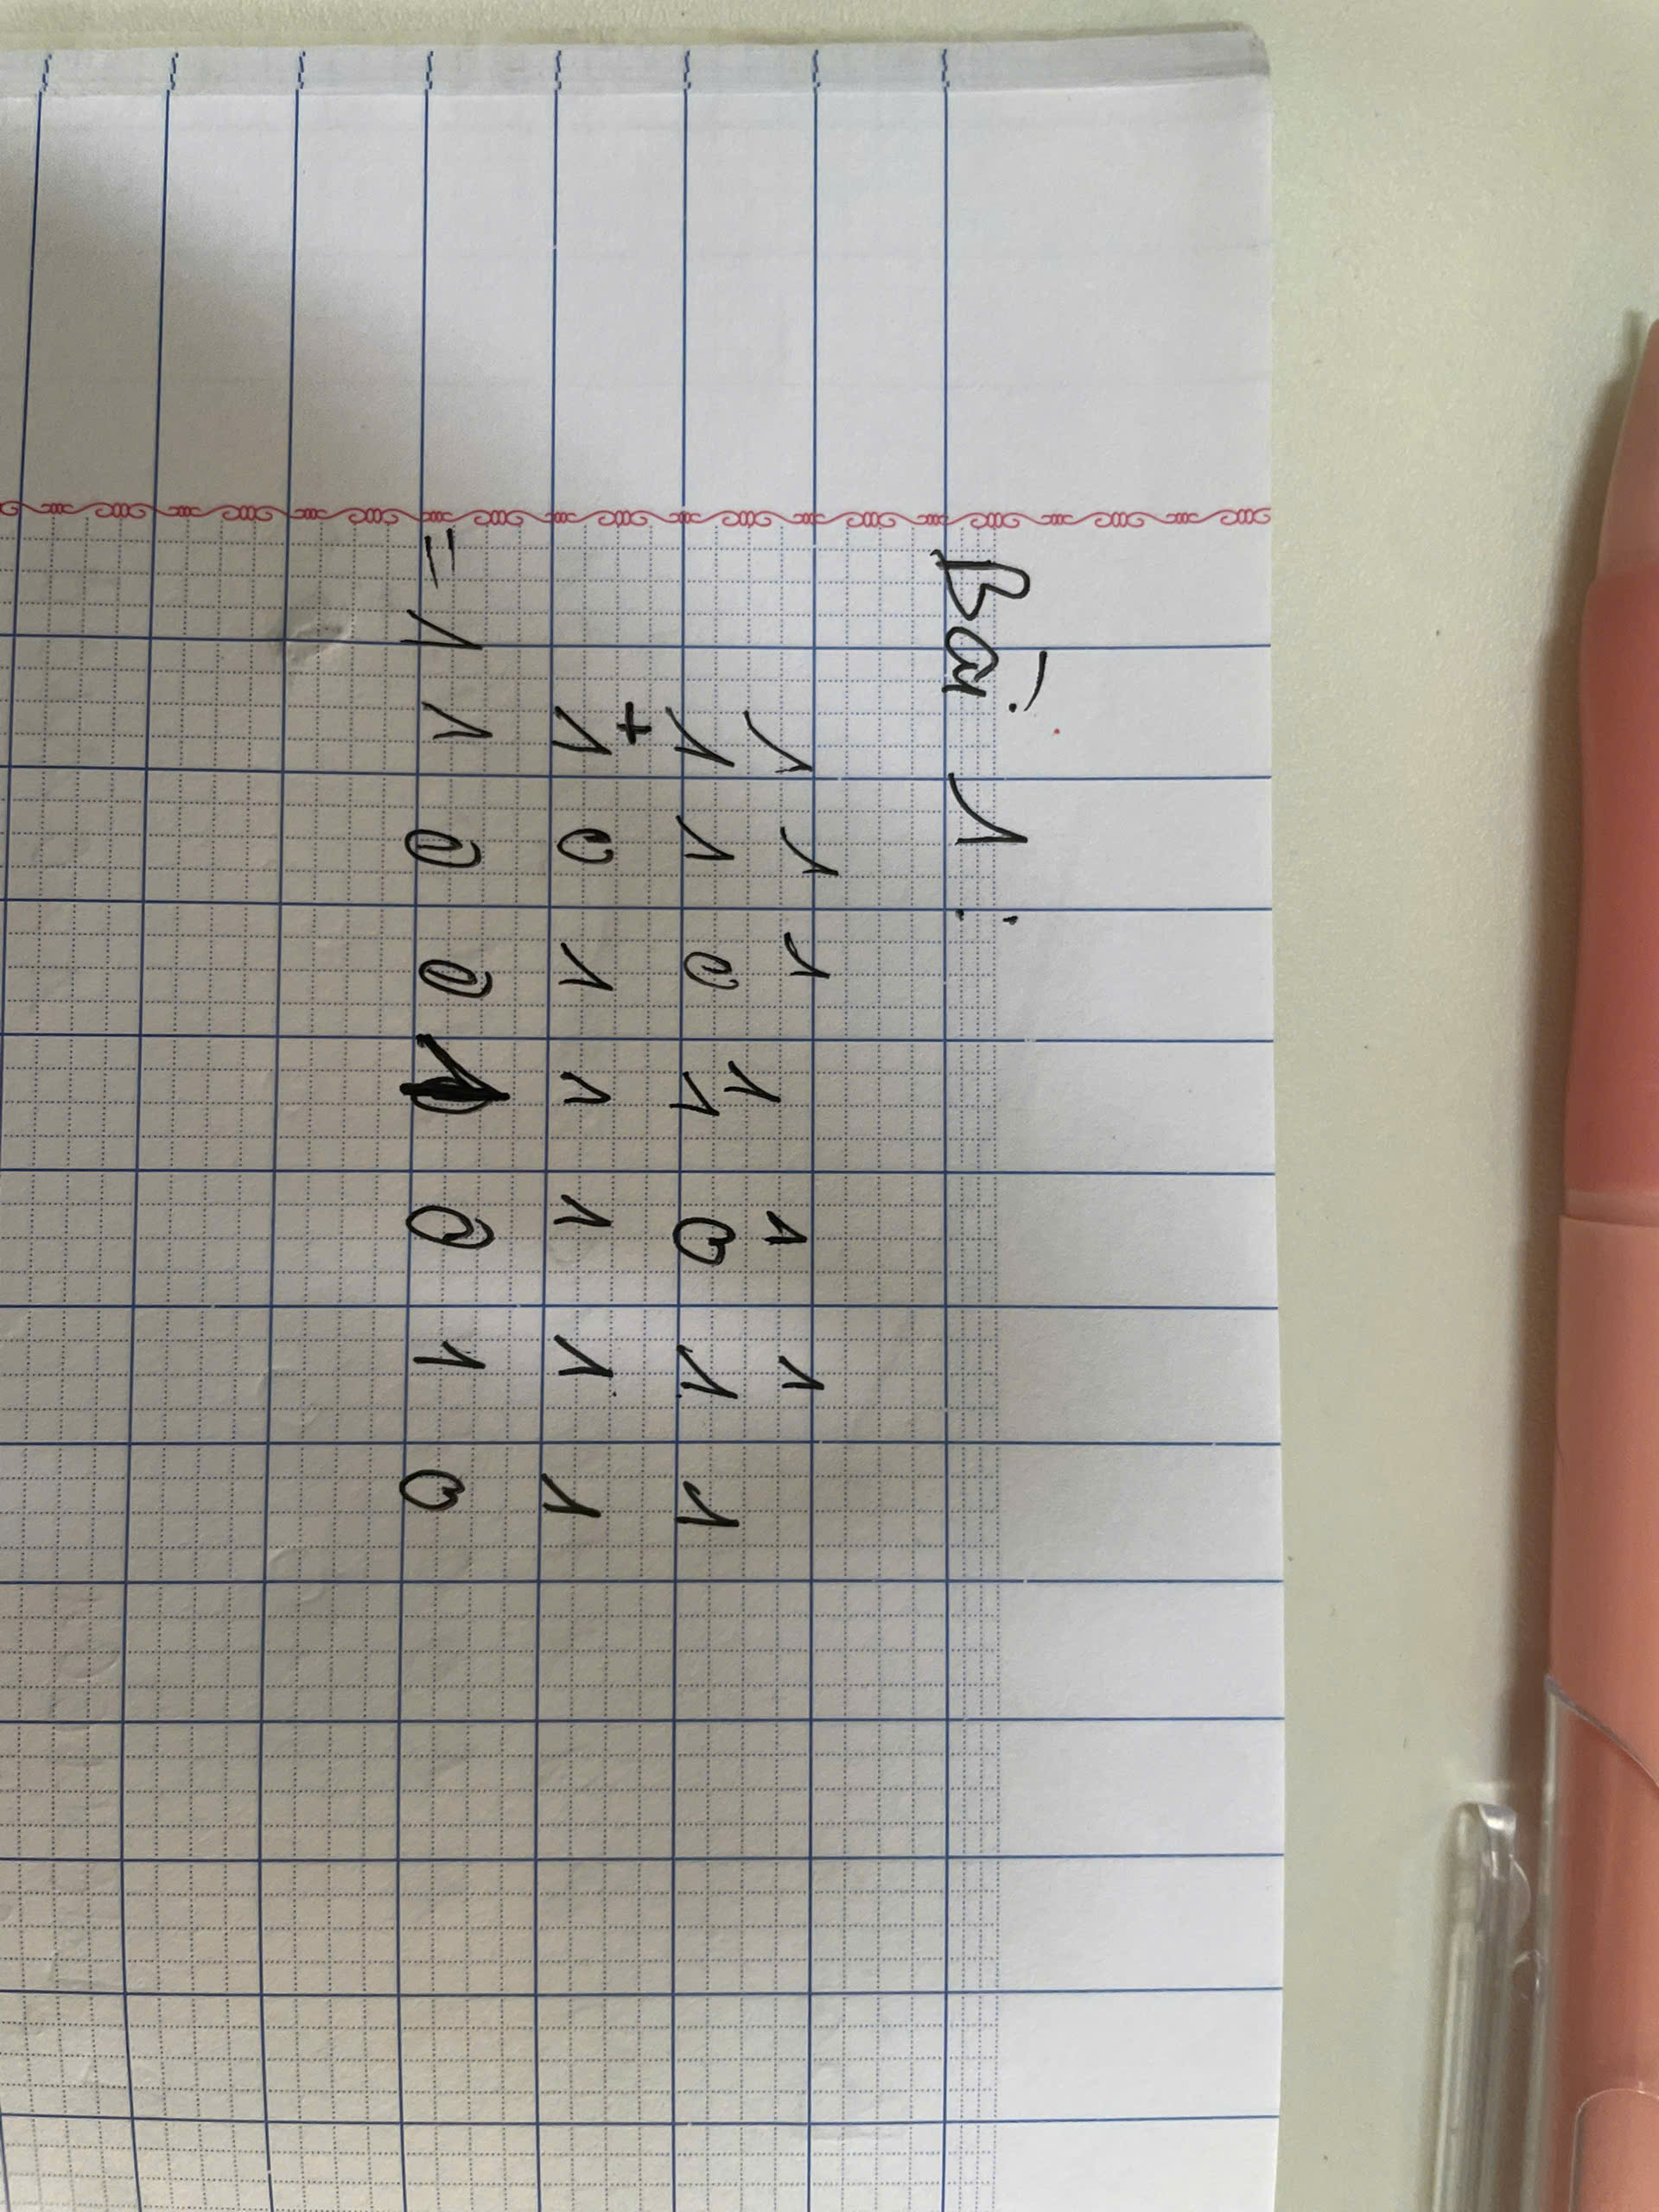 Bài 1:
1 1 1 1 1 1
1 1 0 1 0 1 1
+
1 0 1 1 1 1 1
= 1 1 0 0 1 0 1 0